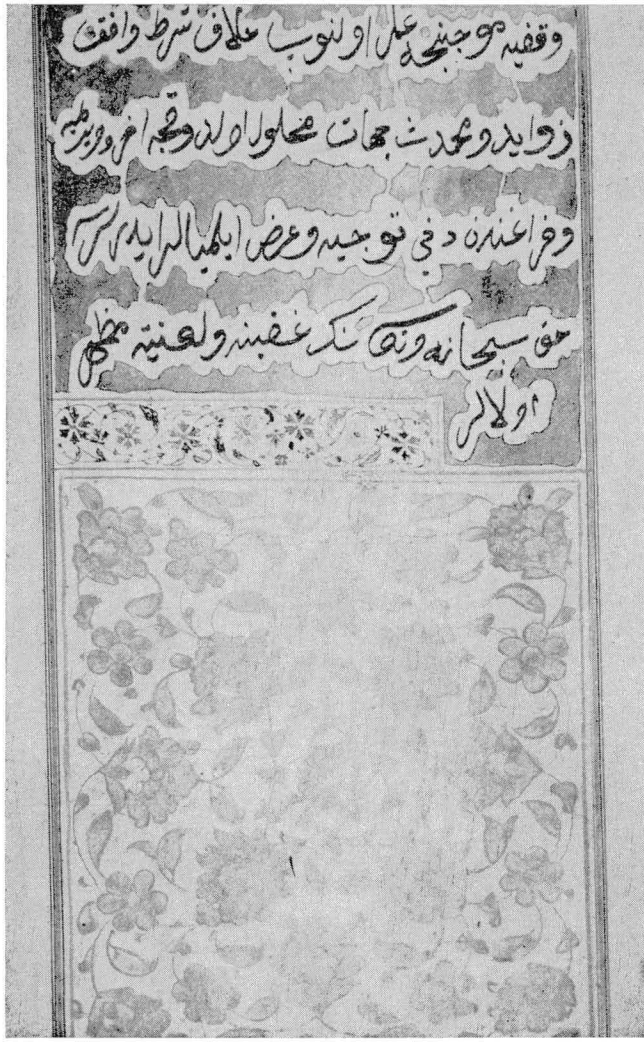 وقفیه موجبنجه عمل اولنوب خلاف شرط واقف
زواید و محدث جهات محلول اولدوقجه اخره ویرلمیه
وفراغندن دخی توجیه وعرض ایلمیه لر ایدرلرسه
حق سبحانه وتعالینك غضبنه ولعنتنه مظهر
اولالر